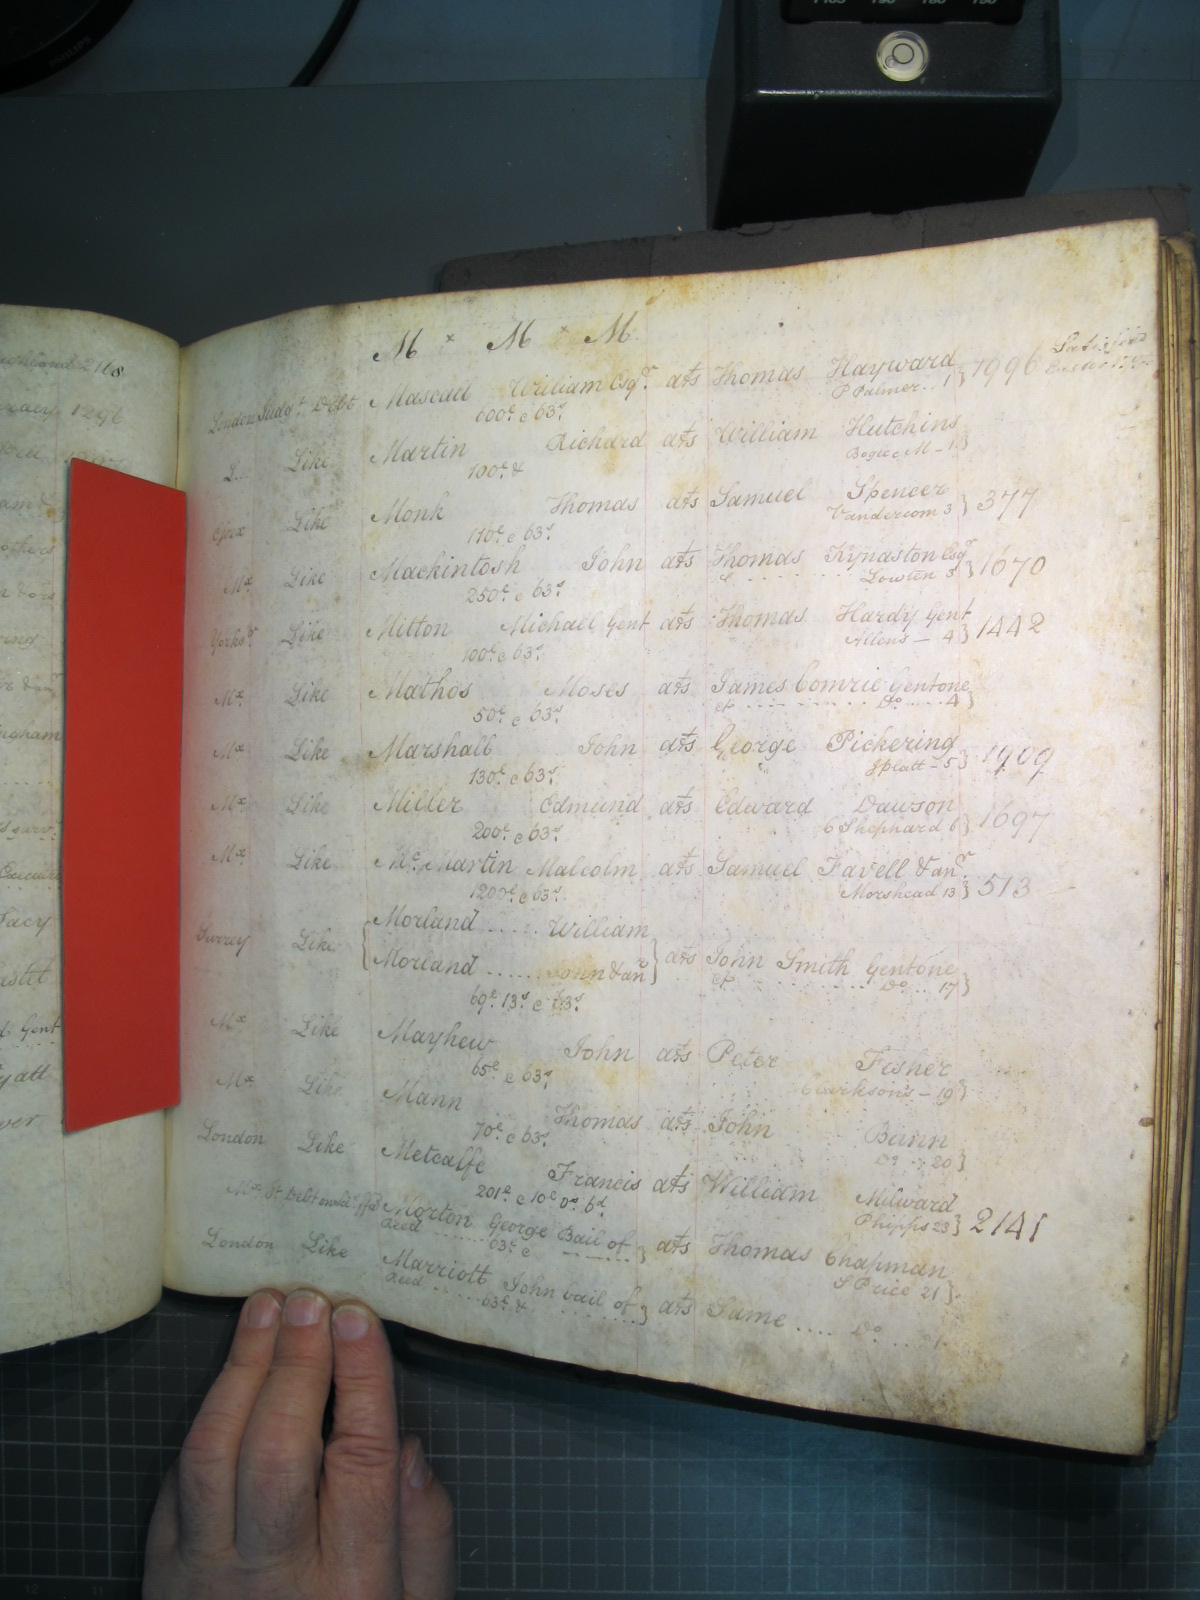 M × M × M
London Judgt. Debt Mascall William Esqr. ats Thomas Hayward } 1996 Satisfied
600£ c 63s P Palmer .. 1
Like Martin Richard ats William Hutchins
100£ & Bogle c M - 1 }
Like Monk Thomas ats Samuel Spencer } 377
110£ c 63s Vandercom 3
Mx Like Mackintosh John ats Thomas Kynaston Esqr } 1670
250£ c 63s Lowten 3
Yorksr Like Mitton Michall Gent ats Thomas Hardy Gent } 1442
100£ c 63s Allens - 4
Mx Like Mathos Moses ats James Comrie Gentone
50£ c 63s Do .... 4 }
Mx Like Marshall John ats George Pickering } 1909
130£ c 63s J Platt - 5
Mx Like Miller Edmund ats Edward Dawson
200£ c 63s C Shephard 6 } 1697
Mx Like Mc. Martin Malcolm ats Samuel Favell & anr.
1200£ c 63s Morshead 13 } 513
Surrey Like { Morland ..... William
Morland ...... John & anr } ats John Smith Gentone
69£ 13s c 63s Do ... 17 }
Mx Like Mayhew John ats Peter Fisher
65£ c 63s Clarksons - 19 }
Mx Like Mann Thomas ats John Bunn
70£ c 63s Do .. 20 }
London Like Metcalfe Francis ats William Milward
201£ c 10£ 0s 6d Phipps 23 } 2141
Mx Morton George Bail of } ats Thomas Chapman
Reed 63s c S Price 21 }
London Like Marriott John bail of } ats Same .... Do ....
Reed 63s &
2168
1296
ingham
Tacy
Gent
yatt
ver
PHILIPS
12 11